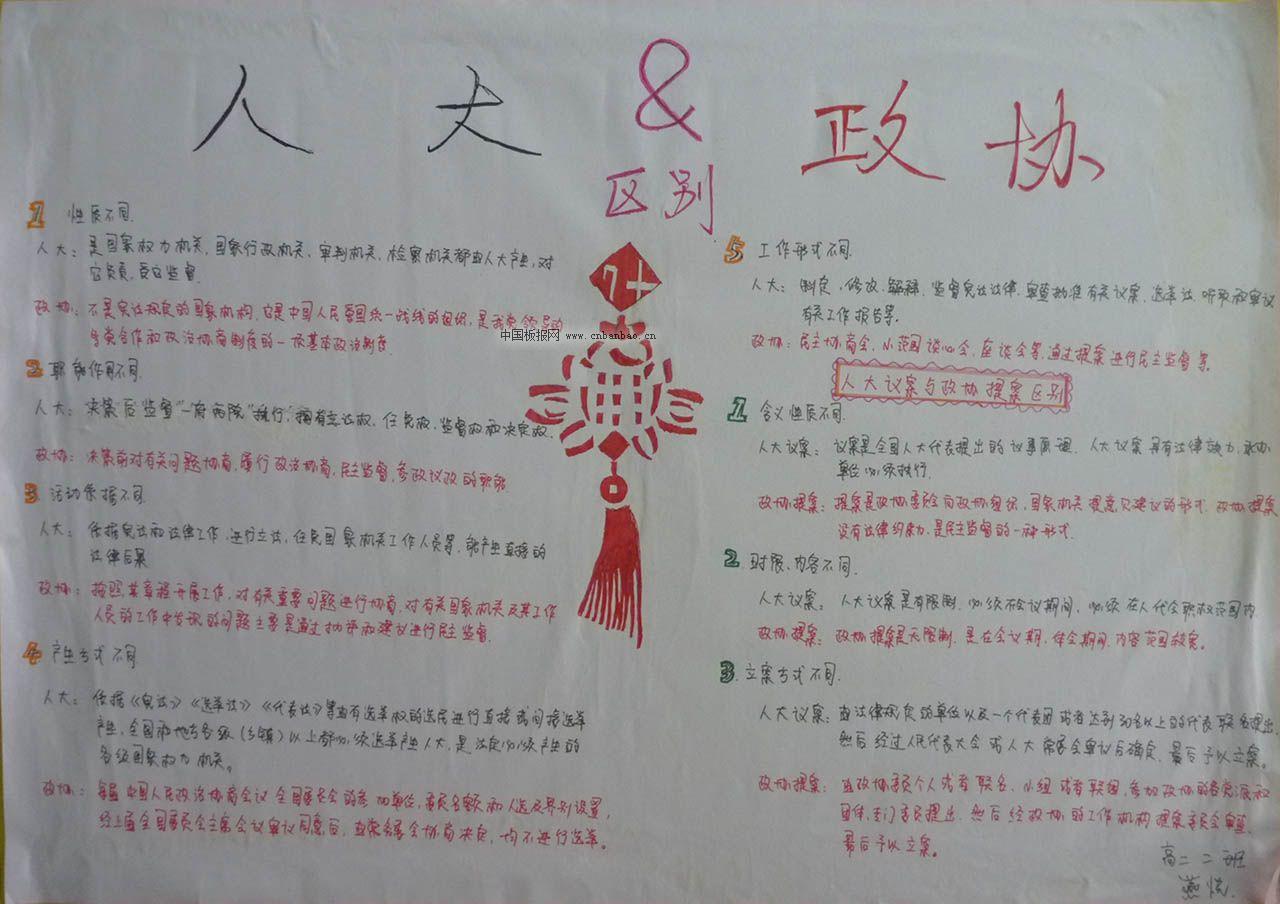 人大 & 政协
区别
1 性质不同.
人大：是国家权力机关，国家行政机关、审判机关、检察机关都由人大产生，对
它负责，受它监督.
政协：不是宪法规定的国家机构，它是中国人民爱国统一战线的组织，是我党领导的
多党合作和政治协商制度的一项基本政治制度.
2 职能作用不同.
人大：决策后监督"一府两院"执行，拥有立法权，任免权，监督权和决定权.
政协：决策前对有关问题协商，履行政治协商，民主监督，参政议政的职能.
3 活动依据不同.
人大：依据宪法和法律工作，进行立法，任免国家机关工作人员等，能产生直接的
法律后果
政协：按照其章程开展工作，对有关重要问题进行协商，对有关国家机关及其工作
人员的工作中发现的问题主要是通过批评和建议进行民主监督.
4 产生方式不同
人大：依据《宪法》《选举法》《代表法》等由有选举权的选民进行直接或间接选举
产生，全国和地方各级（乡镇）以上都必须选举产生人大，是法定必须产生的
各级国家权力机关。
政协：每届中国人民政治协商会议全国委员会的参加单位，委员名额和人选及界别设置，
经上届全国委员会主席会议审议同意后，由常务委员会协商决定，均不进行选举。
中国板报网 www.cnbanbao.cn
5 工作形式不同.
人大：制定，修改，解释，监督宪法法律，审查批准有关议案，选举法，听取和审议
有关工作报告等.
政协：民主协商会，小范围谈心会，座谈会等，通过提案进行民主监督等。
人大议案与政协提案区别
1 含义性质不同.
人大议案：议案是全国人大代表提出的议事原理，人大议案具有法律效力，承办
单位必须执行.
政协提案：提案是政协委员向政协组织，国家机关提意见建议的形式，政协提案
没有法律约束力，是民主监督的一种形式.
2 时限、内容不同.
人大议案：人大议案是有限制，必须在会议期间，必须在人代会职权范围内.
政协提案：政协提案是无限制，是在会议期，休会期间，内容范围较宽。
3 立案方式不同.
人大议案：由法律规定的单位以及一个代表团或者达到30名以上的代表联名提出，
然后经过人民代表大会或人大常委会审议后确定，最后予以立案。
政协提案：由政协委员个人或者联名，小组或者联组，参加政协的各党派和
团体，专门委员提出，然后经政协的工作机构提案委员会审查，
最后予以立案。
高二二班
燕悦.